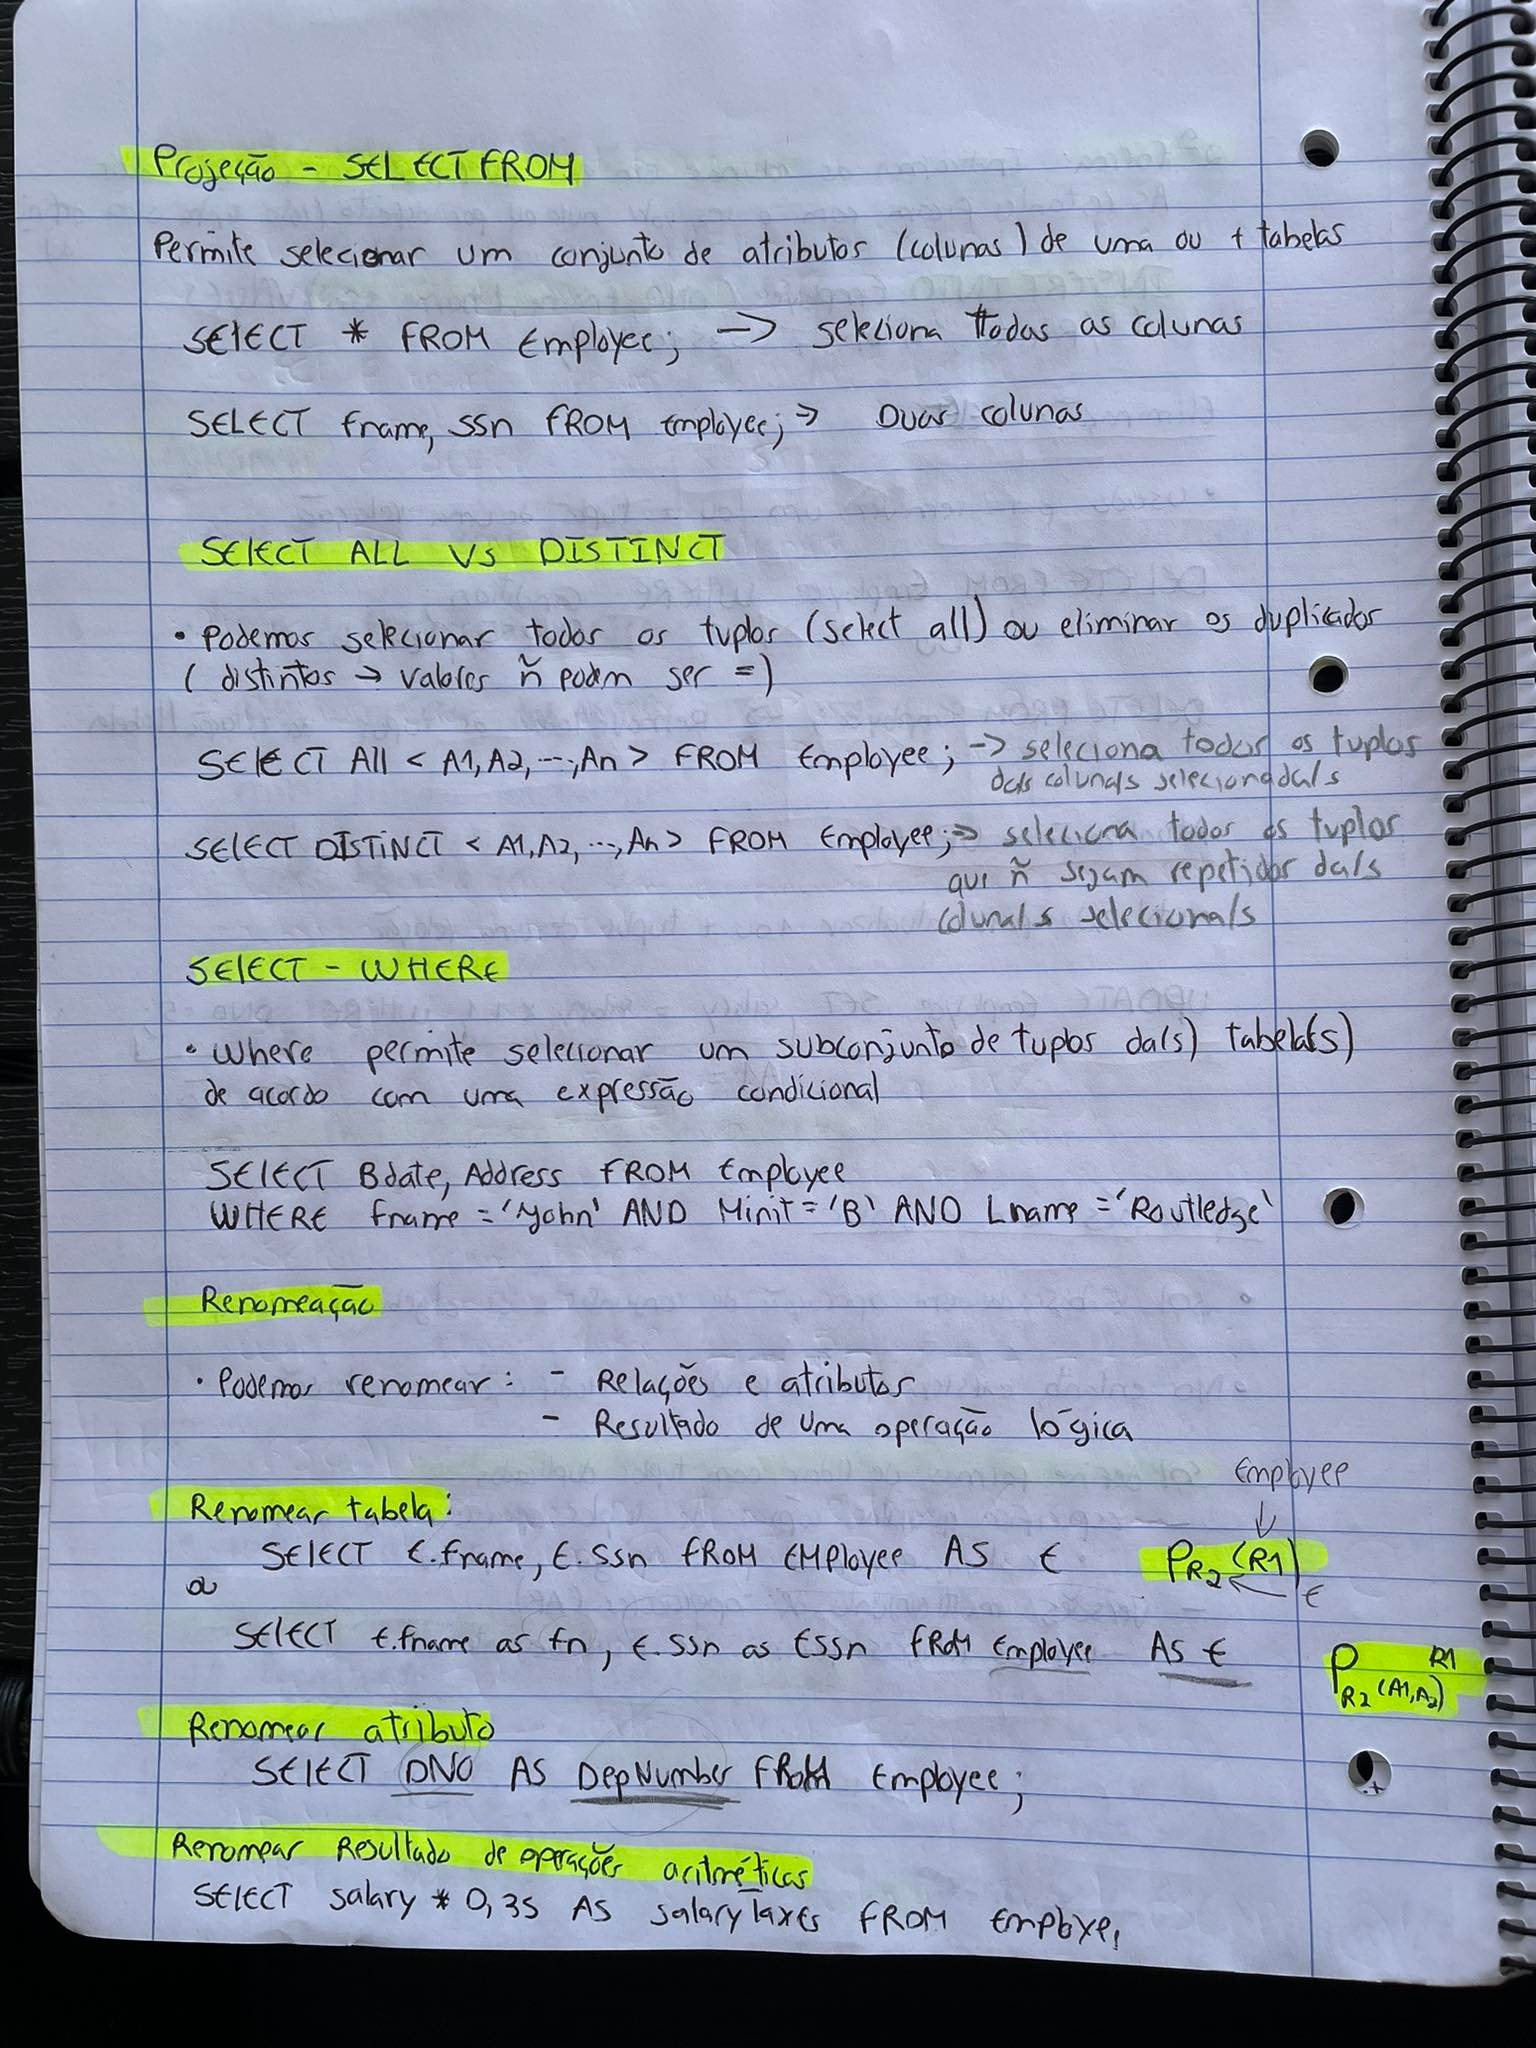 Projeção - SELECT FROM
Permite selecionar um conjunto de atributos (colunas) de uma ou + tabelas
SELECT * FROM Employee; -> seleciona todas as colunas
SELECT fname, ssn FROM employee; -> Duas colunas
SELECT ALL VS DISTINCT
• Podemos selecionar todos os tuplos (select all) ou eliminar os duplicados
( distintos -> valores ñ podem ser =)
SELECT All < A1, A2, ..., An > FROM Employee; -> seleciona todos os tuplos
da/s coluna/s selecionada/s
SELECT DISTINCT < A1, A2, ..., An > FROM Employee; => seleciona todos os tuplos
que ñ sejam repetidos da/s
coluna/s seleciona/s
SELECT - WHERE
• Where permite selecionar um subconjunto de tuplos da(s) tabela(s)
de acordo com uma expressão condicional
SELECT Bdate, Address FROM Employee
WHERE fname = 'John' AND Minit = 'B' AND Lname = 'Routledge'
Renomeação
• Podemos renomear: - Relações e atributos
- Resultado de uma operação lógica
Employee
Renomear tabela:
SELECT E.fname, E.ssn FROM EMPloyee AS E ρR2 (R1)
ou E
SELECT E.fname as fn, E.ssn as Essn FROM Employee AS E
ρ R2 (A1, A2) R1
Renomear atributo
SELECT DNO AS DepNumber FROM Employee;
Renomear Resultado de operações aritméticas
SELECT salary * 0,35 AS salaryTaxes FROM